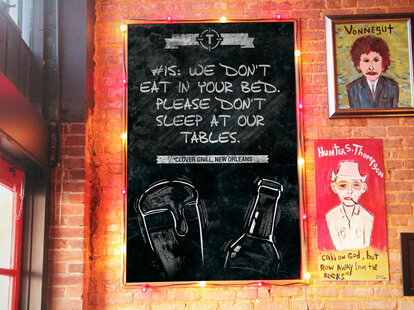 T
#15: WE DON'T
EAT IN YOUR BED.
PLEASE DON'T
SLEEP AT OUR
TABLES.
*CLOVER GRILL, NEW ORLEANS
VONNEGUT
HUNTER S. THOMPSON
CALL ON GOD, BUT
ROW AWAY FROM THE
ROCKS